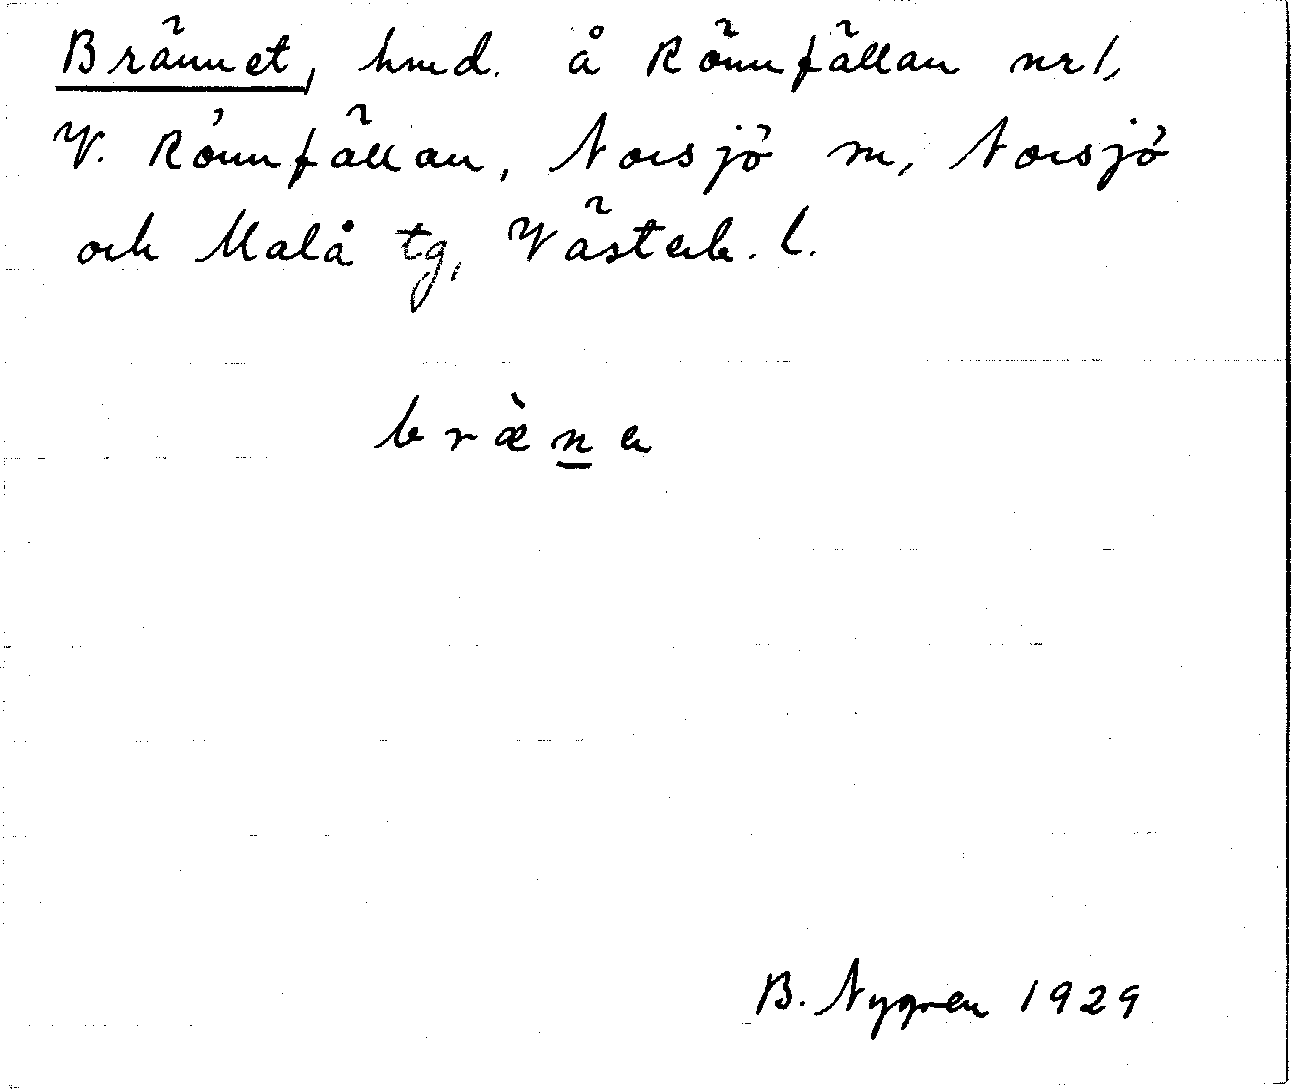 Brännet, hmd. å Rönnfällan nr 1,
V. Rönnfällan, Norsjö sn, Norsjö
och Malå tg, Västerb. l.
bræ̀n̲a
B. Nygren 1929